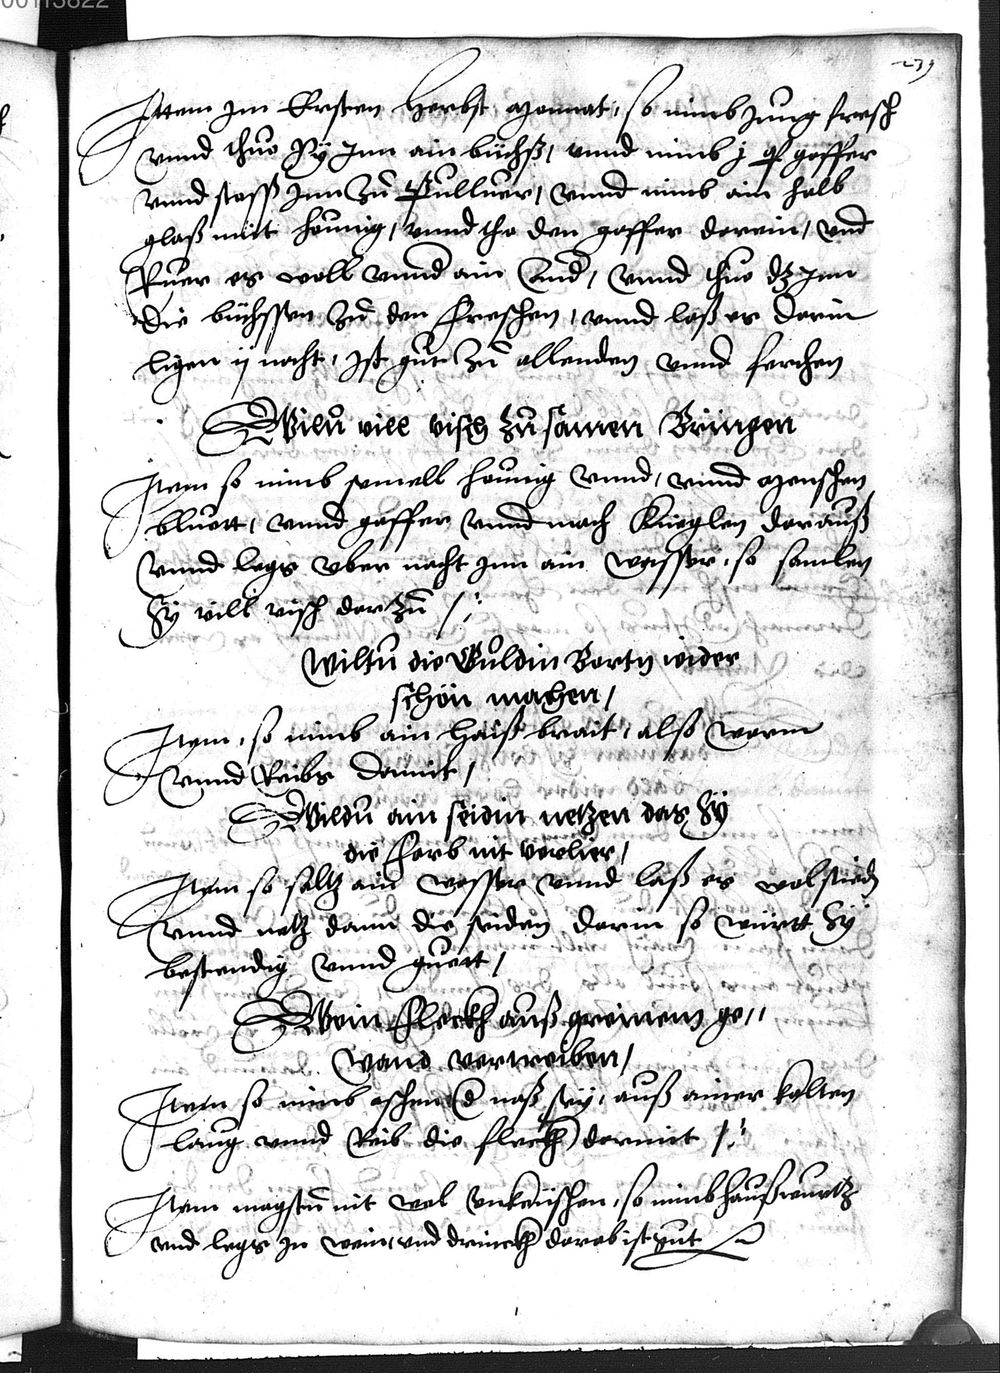 00113822
239
Ittem Im Ersten Herbst Monnat, so nimb Jung fresch
vnnd thuo Sÿ Inn ain büchß, vnnd nimb j gaffer
vnnd stoss Inn Zů Pulluer, vnnd nimb ain halb
glaß mit hönnig, vnnd tho den gaffer darein, vnd
Ruer es woll vnnd ain And, vnnd thuo dz Inn
die büchssen Zů den freschen, vnnd laß es darin
ligen ij nacht, Jst gůt Zů allenden vnnd ferchen
Wilů vill visch Zů samen Bringen
Item so nimb semell hönnig vnnd, vnnd menschen
bluott, vnnd gaffer vnnd mach Kueglen darauß
vnnd legs vber nacht Inn ain wasser, so samlen
Sÿ vill visch darzů
Wiltů die Guldin Borty wider
schön machen,
Itym, so nimb ain haiß brait, also warm
vnnd Reibs damit,
Wildů ain seidin netzen das Sÿ
die farb nit verlier,
Item so saltz ain wasser vnnd laß es wol sieden
vnnd netz dann die seiden darin so württ Sÿ
bestendig vnnd guott,
Wein fleckh auß greinem ge,,
wand vertreiben,
Item so nimb aschen d naß sÿ, auß ainer kalten
laug vnnd Reib die fleckh darmit
Item magstů nit wol vnkeüschen, so nimb haußwurtz
vnd legs in wein, vnd drinckh darab ist gut